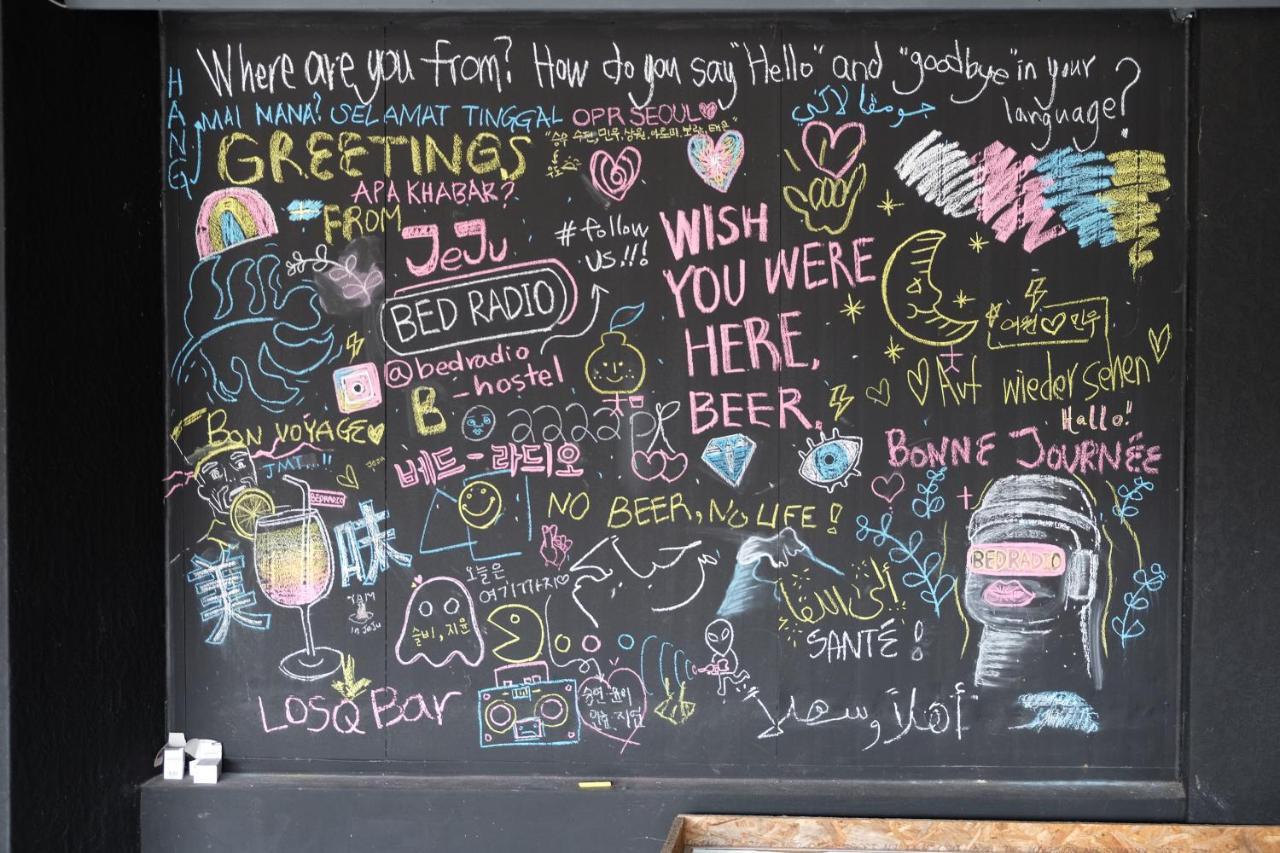 Where are you from? How do you say "Hello" and "goodbye" in your
language?
HANG
MAI MANA? SELAMAT TINGGAL
OPR SEOUL
GREETINGS
APA KHABAR?
FROM
JeJu
#follow
us!!!
BED RADIO
@bedradio
_hostel
B
WISH
YOU WERE
HERE,
BEER.
여원♡민우
Auf wiedersehen
Hallo!
BONNE JOURNÉE
BON VOYAGE
JMT...!!
aaaa
베드-라디오
BEDRADIO
NO BEER, NO LIFE!
美味
YAM
in JeJu
오늘은
여기까지♡
مرحبا
إلى اللقاء
BEDRADIO
슬비, 지윤
SANTÉ!
LOSQ Bar
"أهلاً وسهلاً"